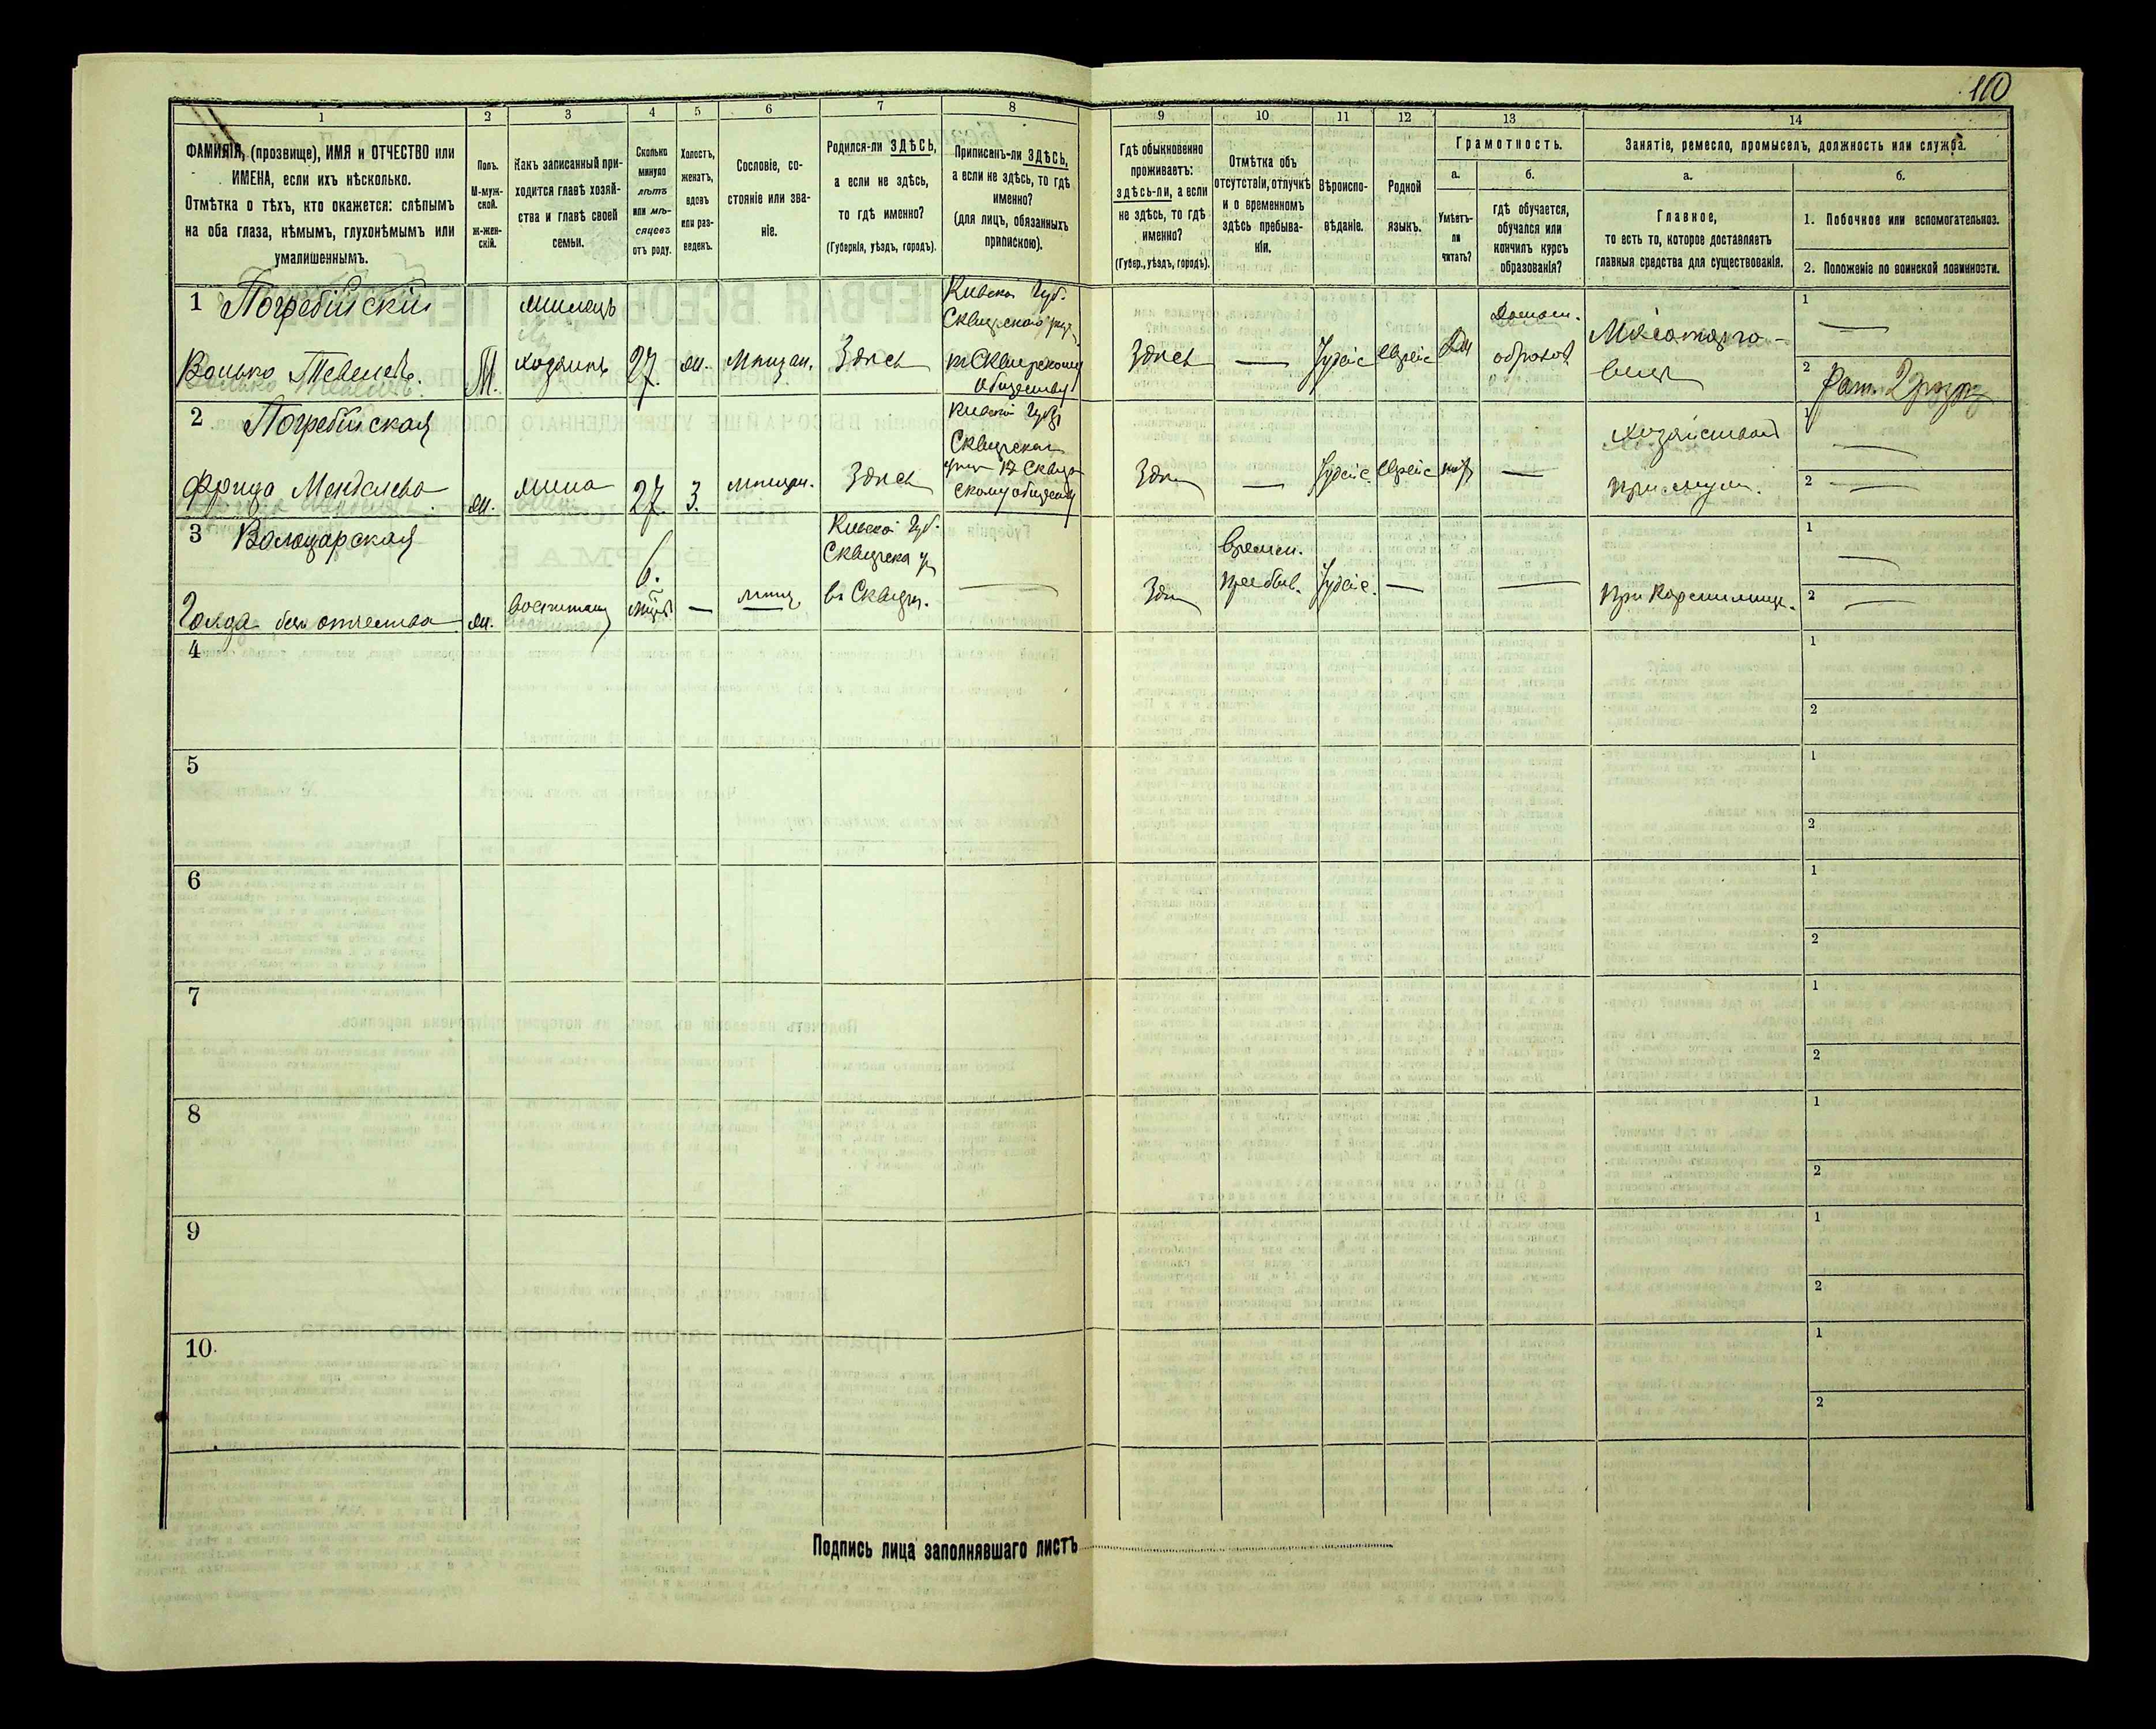 110
1
2
3
4
5
6
7
8
9
10
11
12
13
14
ФАМИЛІЯ, (прозвище), ИМЯ и ОТЧЕСТВО или
ИМЕНА, если ихъ нѣсколько.
Отмѣтка о тѣхъ, кто окажется: слѣпымъ
на оба глаза, нѣмымъ, глухонѣмымъ или
умалишеннымъ.
Полъ.
М-муж-
ской.
Ж-жен-
скій.
Какъ записанный при-
ходится главѣ хозяй-
ства и главѣ своей
семьи.
Сколько
минуло
лѣтъ
или мѣ-
сяцевъ
отъ роду.
Холостъ,
женатъ,
вдовъ
или раз-
веденъ.
Сословіе, со-
стояніе или зва-
ніе.
Родился-ли ЗДѢСЬ,
а если не здѣсь,
то гдѣ именно?
(Губернія, уѣздъ, городъ).
Приписанъ-ли ЗДѢСЬ,
а если не здѣсь, то гдѣ
именно?
(для лицъ, обязанныхъ
припискою).
Гдѣ обыкновенно
проживаетъ:
здѣсь-ли, а если
не здѣсь, то гдѣ
именно?
(Губер., уѣздъ, городъ).
Отмѣтка объ
отсутствіи, отлучкѣ
и о временномъ
здѣсь пребыва-
ніи.
Вѣроиспо-
вѣданіе.
Родной
языкъ.
Грамотность.
а.
Умѣетъ-
ли
читать?
б.
гдѣ обучается,
обучался или
кончилъ курсъ
образованія?
Занятіе, ремесло, промыселъ, должность или служба.
а.
Главное,
то есть то, которое доставляетъ
главныя средства для существованія.
б.
1. Побочное или вспомогательное.
2. Положеніе по воинской повинности.
1 Погребійскій
Волько Тевелевъ.
М.
жилецъ
хозяинъ
27.
ж.
Мѣщан.
Здѣсь
Кіевской Губ.
Сквирского уѣз.
къ Сквирскому
обществу
Здѣсь
—
Іудейс
Еврейс
Да
Домаш.
образов.
Мясоторго-
вецъ
1 —
2 Рат. 2 разр.
2 Погребійская
Фрица Менделева
ж.
жена
27.
З.
мѣщан.
Здѣсь
Кіевской Губ.
Сквирскаго
уѣз. къ Сквир
скому обществу
Здѣсь
—
Іудейс.
Еврейс
нѣтъ
—
хозяйство
при муж.
1 —
2 —
3 Володарская
Голда безъ отчества
ж.
воспитан
6.
мѣсяц.
—
мѣщ.
Кіевской Губ.
Сквирска у.
въ Сквирѣ.
—
Здѣсь
времен.
пребыв.
Іудейс.
—
—
при кормилицѣ.
1 —
2 —
4
1
2
5
1
2
6
1
2
7
1
2
8
1
2
9
1
2
10.
1
2
Подпись лица заполнявшаго листъ